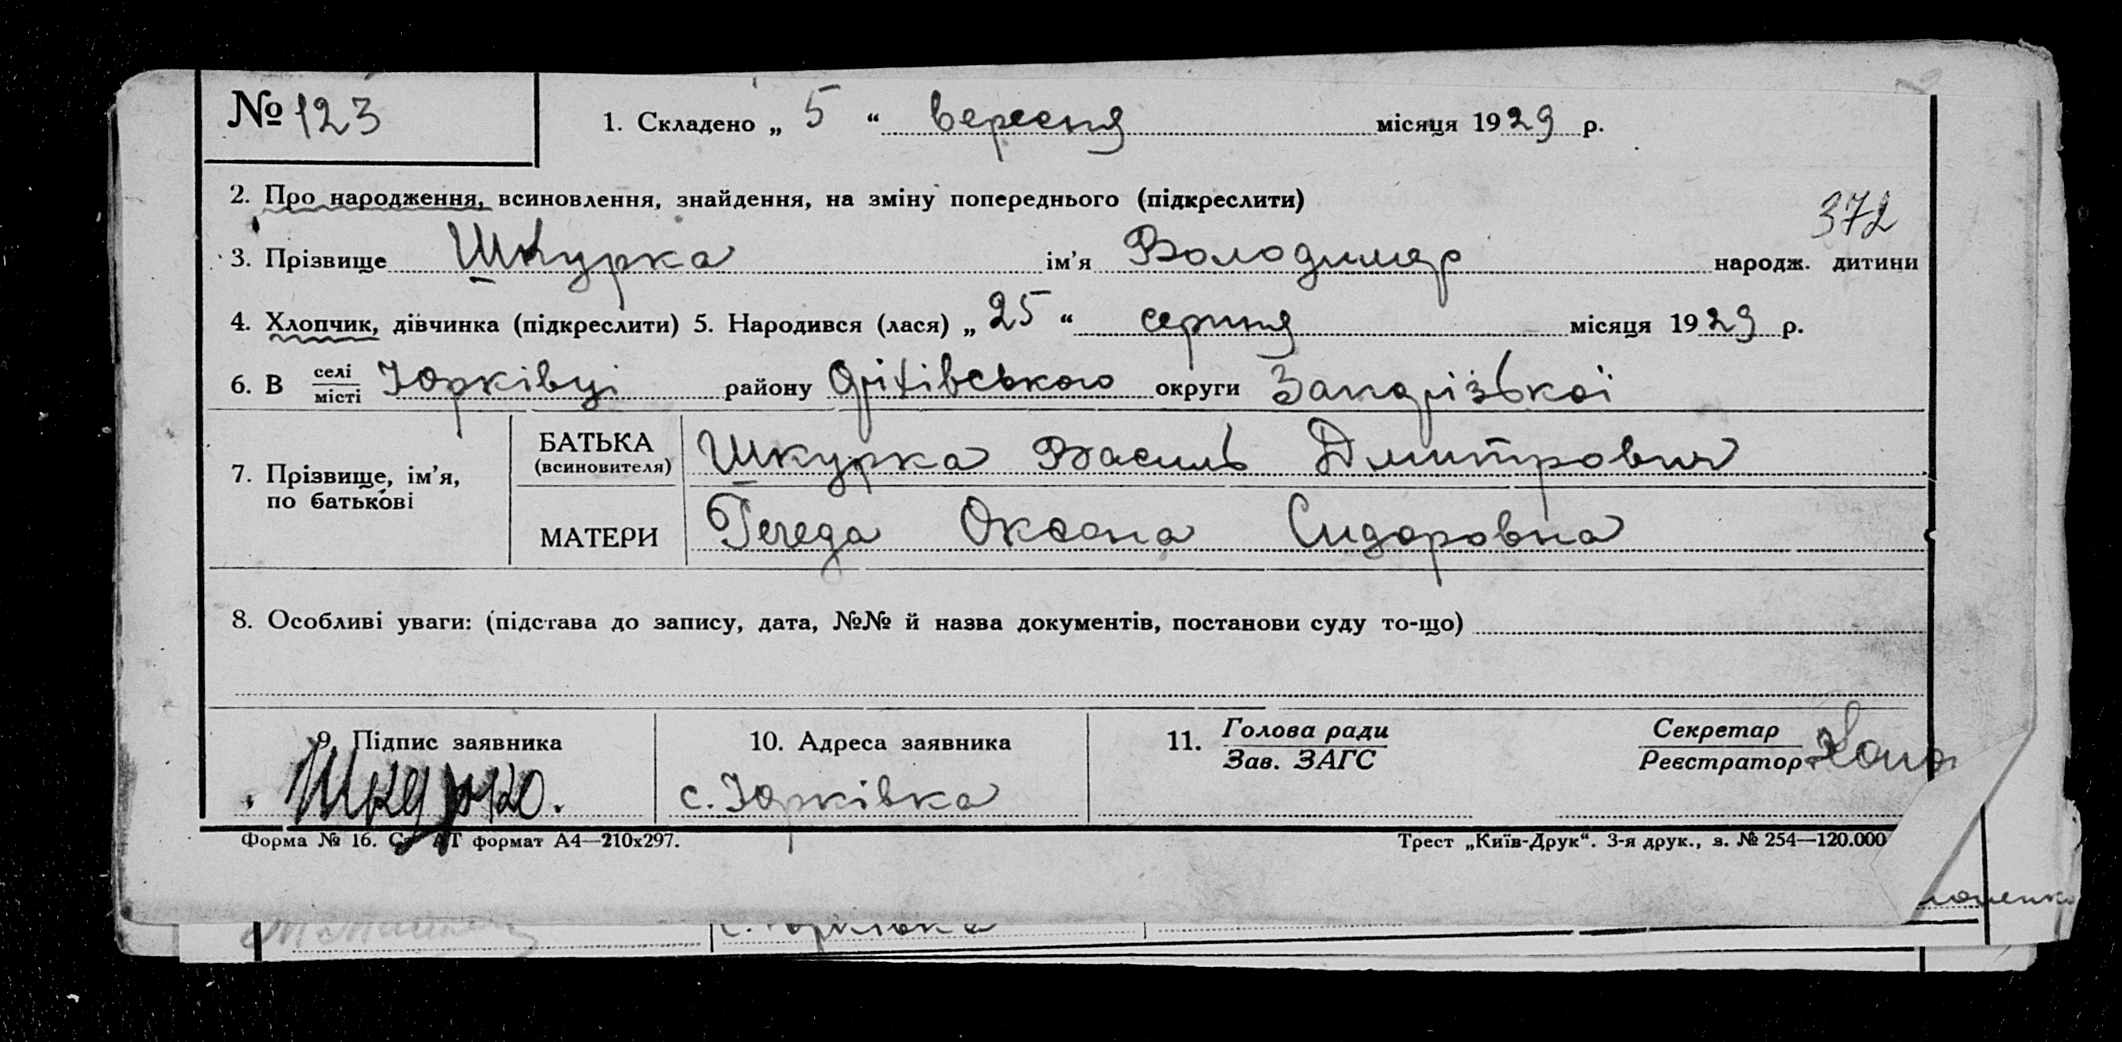 № 123
1. Складено „ 5 “ вересня місяця 1929 р.
2. Про народження, всиновлення, знайдення, на зміну попереднього (підкреслити)
372
3. Прізвище Шкурка ім’я Володимер народж. дитини
4. Хлопчик, дівчинка (підкреслити) 5. Народився (лася) „ 25 “ серпня місяця 1929 р.
6. В селі місті Юрківці району Оріхівського округи Запорізької
7. Прізвище, ім’я, по батькові
БАТЬКА (всиновителя) Шкурка Василь Дмитрович
МАТЕРИ Гегеда Оксана Сидоровна
8. Особливі уваги: (підстава до запису, дата, №№ й назва документів, постанови суду то-що)
9. Підпис заявника
Шкурко.
10. Адреса заявника
с. Юрківка
11. Голова ради Зав. ЗАГС
Секретар Реєстратор
Форма № 16. Ст. АТ формат А4—210х297.
Трест „Київ-Друк“. 3-я друк., з. № 254—120.000